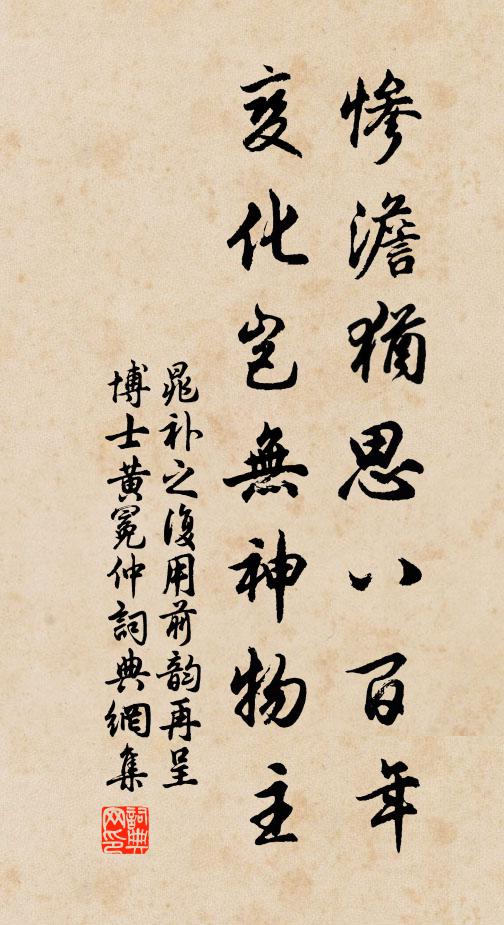 慘澹猶思八百年
變化豈無神物主
晁补之復用前韵再呈
博士黄冕仲詞典網集
詞典网印